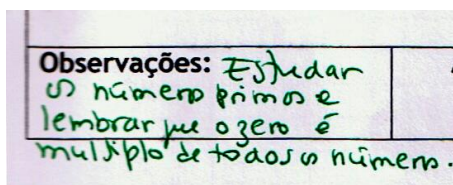 Observações: Estudar
os número primos e
lembrar que o zero é
multiplo de todos os número.